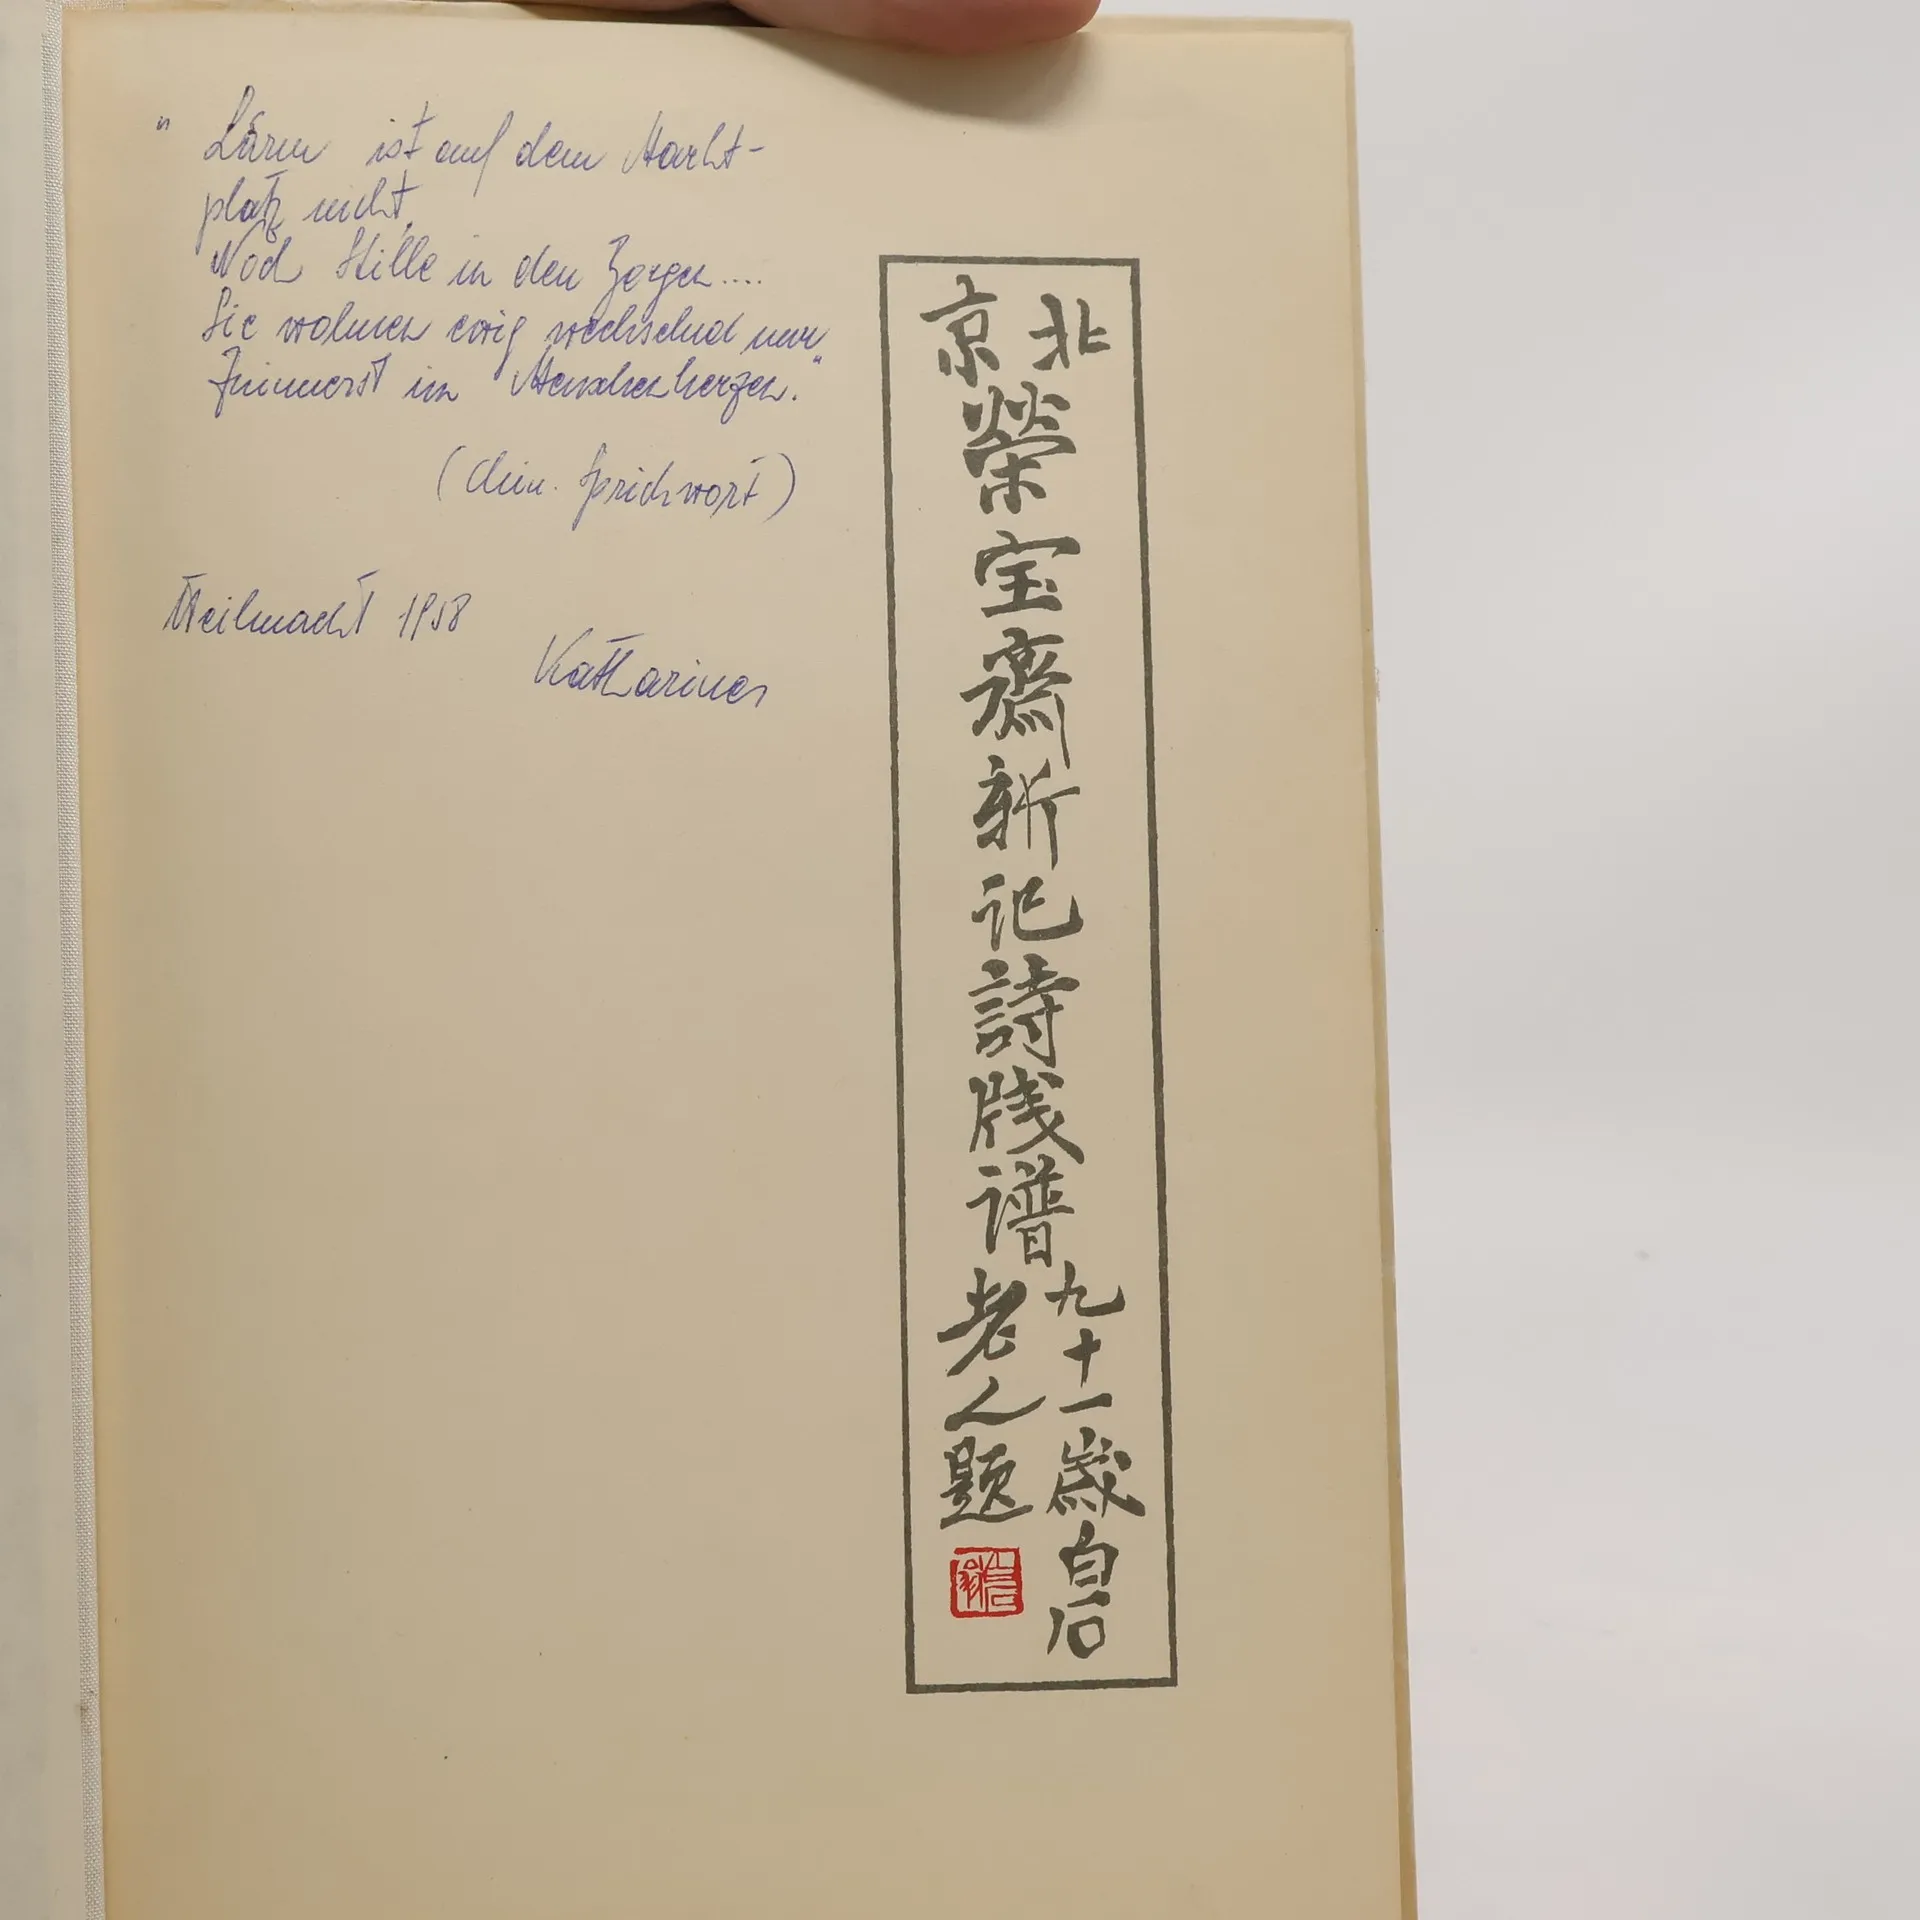 " Lärm ist auf dem Markt-
platz nicht,
Noch Stille in den Bergen....
Sie wohnen ewig wechselnd nur
Zuinnerst im Menschenherzen."
(chin. Sprichwort)
Weihnacht 1958
Katharina
北京
榮宝齋新记詩牋谱
九十一歲白石
老人題